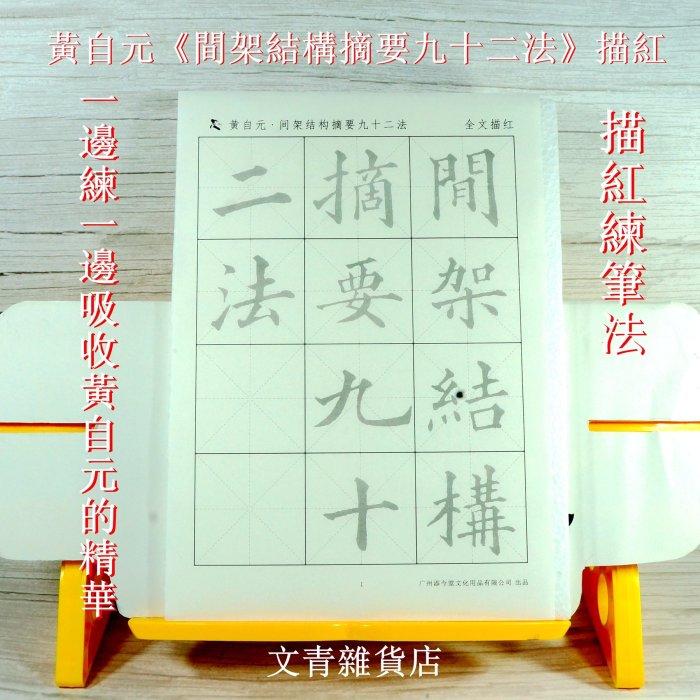 黃自元《間架結構摘要九十二法》描紅
描紅練筆法
一邊練一邊吸收黃自元的精華
黄自元·间架结构摘要九十二法
全文描红
間架結構
摘要九十
二法
1
广州添今堂文化用品有限公司 出品
文青雜貨店